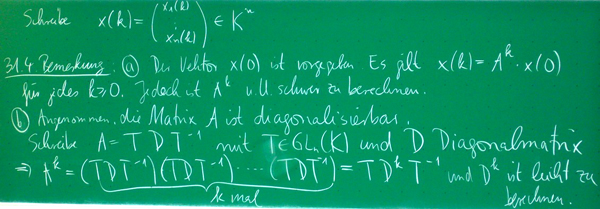 Schreibe x(k) = (x₁(k) ⋮ xₙ(k)) ∈ Kⁿ
31.4 Bemerkung: (a) Der Vektor x(0) ist vorgegeben. Es gilt x(k) = Aᵏ · x(0)
für jedes k ≥ 0. Jedoch ist Aᵏ u.U. schwer zu berechnen.
(b) Angenommen, die Matrix A ist diagonalisierbar.
Schreibe A = T D T⁻¹ mit T ∈ GLₙ(K) und D Diagonalmatrix
⇒ Aᵏ = (TDT⁻¹)(TDT⁻¹)·....·(TDT⁻¹) = T Dᵏ T⁻¹ und Dᵏ ist leicht zu
k mal berechnen.